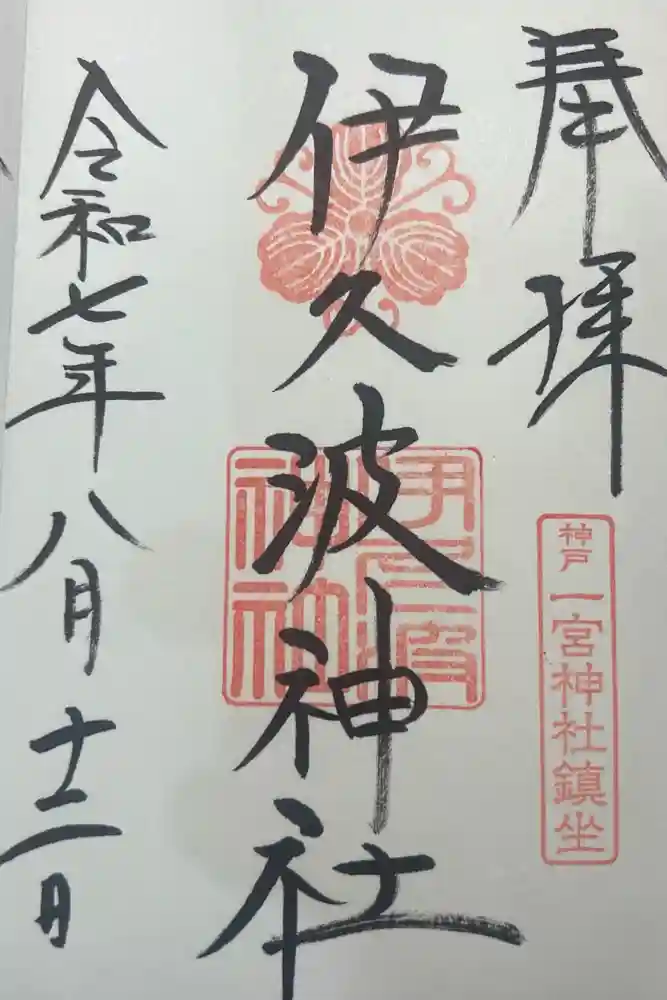 奉拝
神戸
一宮神社鎮坐
伊久波神社
令和七年八月十二日